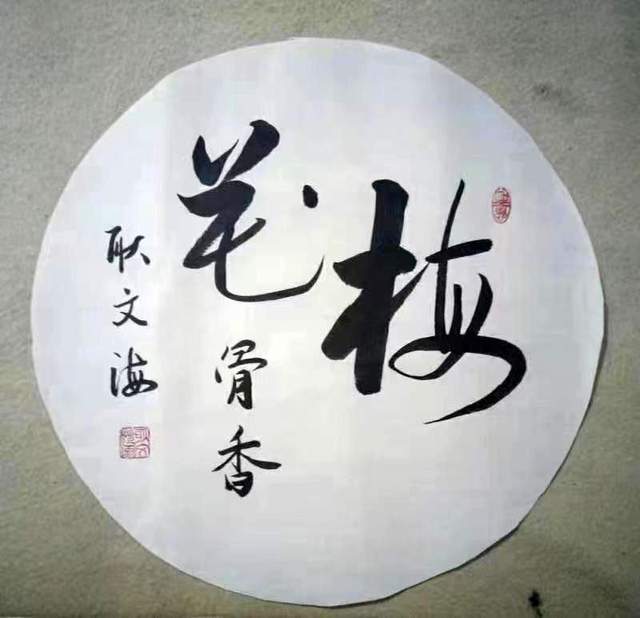 梅
花
骨香
耿文海